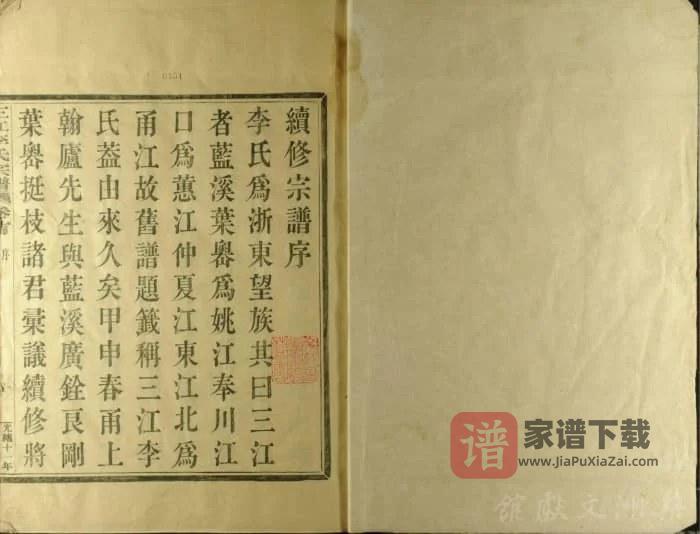 續修宗譜序
李氏為浙東望族其曰三江
者藍溪葉嶴為姚江奉川江
口為蕙江仲夏江東江北為
甬江故舊譜題籤稱三江李
氏葢由來久矣甲申春甬上
翰廬先生與藍溪廣銓艮剛
葉嶴挺枝諸君彙議續修將
三江李氏宗譜
卷首
序
光緒十一年
0151
譜
家谱下载
www.JiaPuXiaZai.com
文獻館